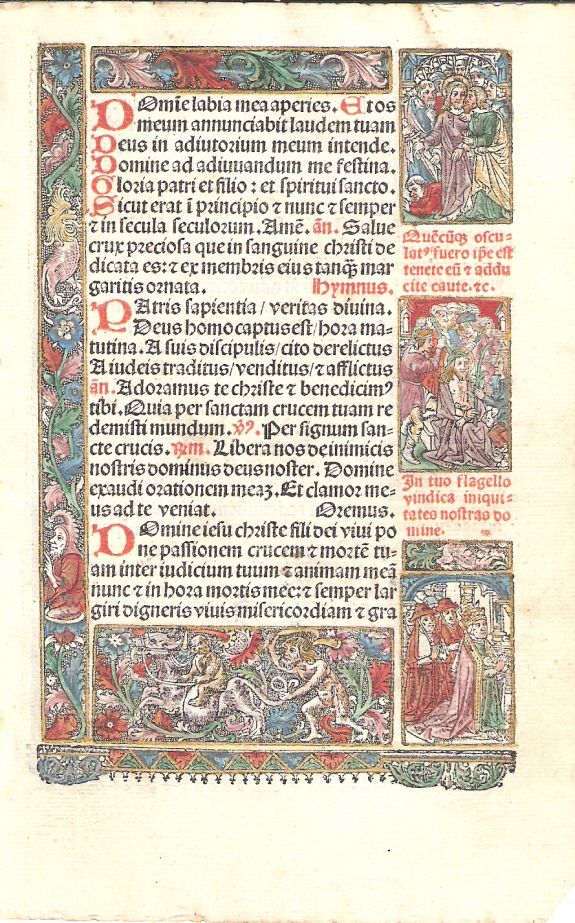 Omīe labia mea aperies. Et os
meum annunciabit laudem tuam
Deus in adiutorium meum intende.
Domine ad adiuuandum me festina.
Gloria patri et filio : et spiritui sancto.
Sicut erat ī principio ⁊ nunc ⁊ semper
⁊ in secula seculorum. Amē. añ. Salue
crux preciosa que in sanguine christi de
dicata es: ⁊ ex membris eius tanq̄ mar
garitis ornata. Hymnus.
PAtris sapientia / veritas diuina.
Deus homo captus est / hora ma-
tutina. A suis discipulis / cito derelictus
A iudeis traditus / venditus / ⁊ afflictus
añ. Adoramus te christe ⁊ benedicimꝰ
tibi. Quia per sanctam crucem tuam re
demisti mundum. ꝟ. Per signum san-
cte crucis. Libera nos de inimicis
nostris dominus deus noster. Domine
exaudi orationem meaꝫ. Et clamor me-
us ad te veniat. Oremus.
DOmine iesu christe fili dei viui po
ne passionem crucem ⁊ mortē tu-
am inter iudicium tuum ⁊ animam meā
nunc ⁊ in hora mortis mee: ⁊ semper lar
giri digneris viuis misericordiam ⁊ gra
Quēcūqꝫ oscu-
latꝰ fuero ip̄e est
tenete eū ⁊ addu
cite caute. ⁊c.
In tuo flagello
vindica iniqui-
tates nostras do
mine.